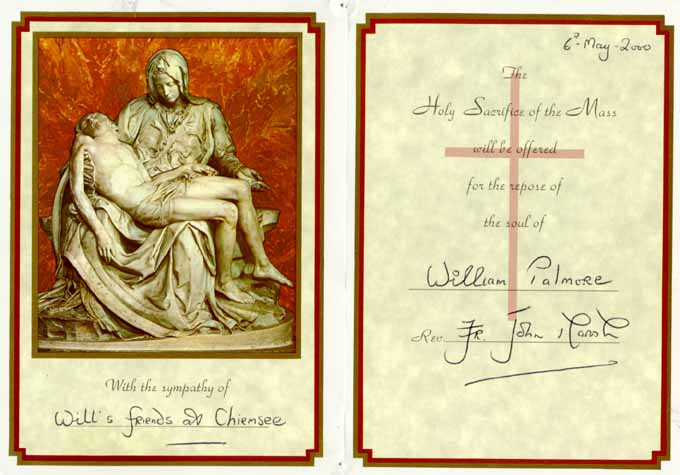 With the sympathy of
Will's friends at Chiemsee
6th May-2000
The
Holy Sacrifice of the Mass
will be offered
for the repose of
the soul of
William Palmore
Rev. Fr. John